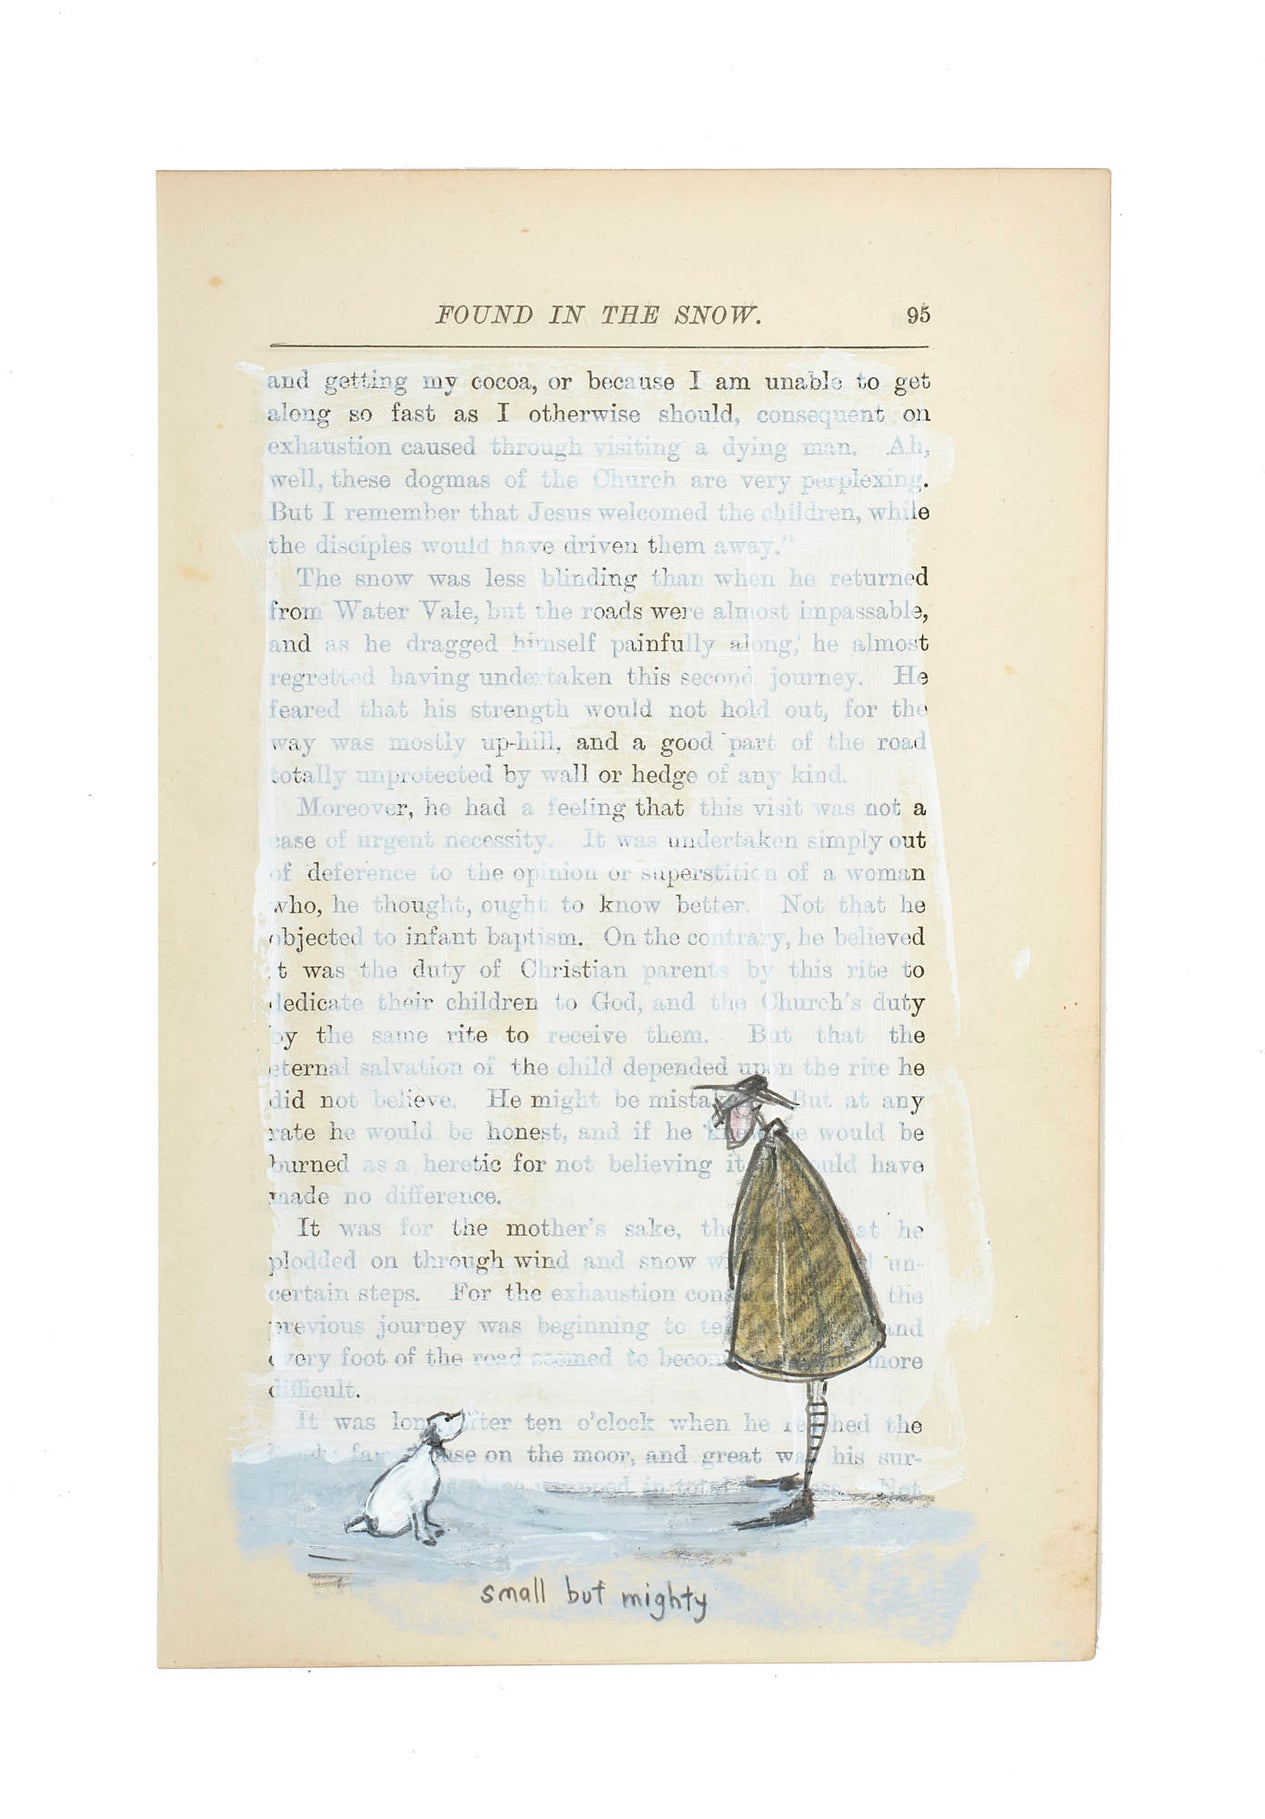 FOUND IN THE SNOW. 95
and getting my cocoa, or because I am unable to get
along so fast as I otherwise should, consequent on
exhaustion caused through visiting a dying man. Ah,
well, these dogmas of the Church are very perplexing.
But I remember that Jesus welcomed the children, while
the disciples would have driven them away."
The snow was less blinding than when he returned
from Water Vale, but the roads were almost impassable,
and as he dragged himself painfully along, he almost
regretted having undertaken this second journey. He
feared that his strength would not hold out, for the
way was mostly up-hill, and a good part of the road
totally unprotected by wall or hedge of any kind.
Moreover, he had a feeling that this visit was not a
case of urgent necessity. It was undertaken simply out
of deference to the opinion or superstition of a woman
who, he thought, ought to know better. Not that he
objected to infant baptism. On the contrary, he believed
it was the duty of Christian parents by this rite to
dedicate their children to God, and the Church's duty
by the same rite to receive them. But that the
eternal salvation of the child depended upon the rite he
did not believe. He might be mistaken. But at any
rate he would be honest, and if he knew he would be
burned as a heretic for not believing it would have
made no difference.
It was for the mother's sake, that he
plodded on through wind and snow un-
certain steps. For the exhaustion the
previous journey was beginning to and
every foot of the road seemed to become more
difficult.
It was long after ten o'clock when he reached the
on the moor, and great was his sur-
in total Not
small but mighty